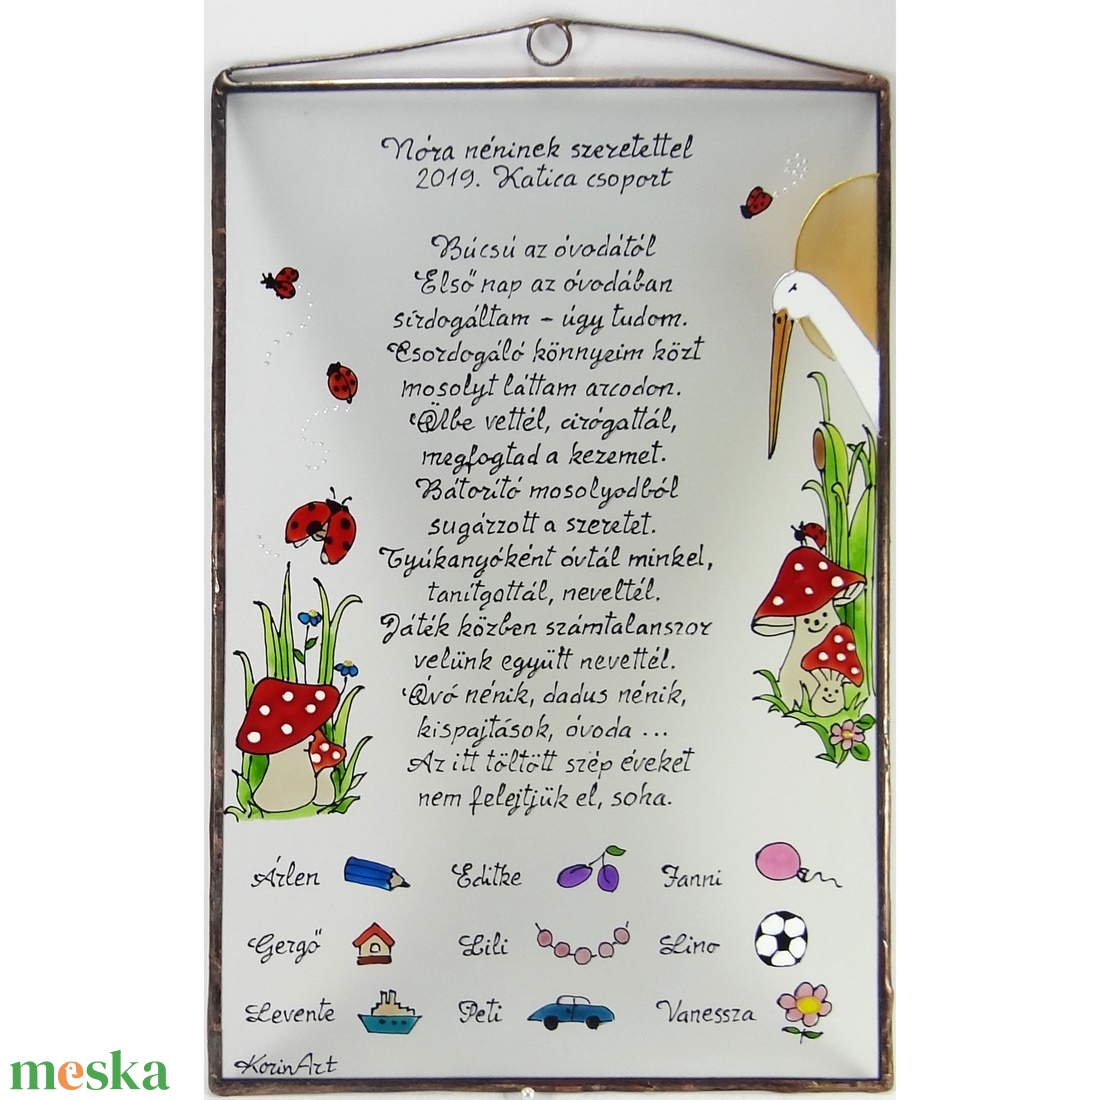 Nóra néninek szeretettel
2019. Katica csoport
Búcsú az óvodától
Első nap az óvodában
sírdogáltam - úgy tudom.
Csordogáló könnyeim közt
mosolyt láttam arcodon.
Ölbe vettél, cirógattál,
megfogtad a kezemet.
Bátorító mosolyodból
sugárzott a szeretet.
Tyúkanyóként óvtál minket,
tanítgattál, neveltél.
Játék közben számtalanszor
velünk együtt nevettél.
Óvó nénik, dadus nénik,
kispajtások, óvoda ...
Az itt töltött szép éveket
nem felejtjük el, soha.
Árlen Editke Fanni
Gergő Lili Lino
Levente Peti Vanessza
KorinArt
meska